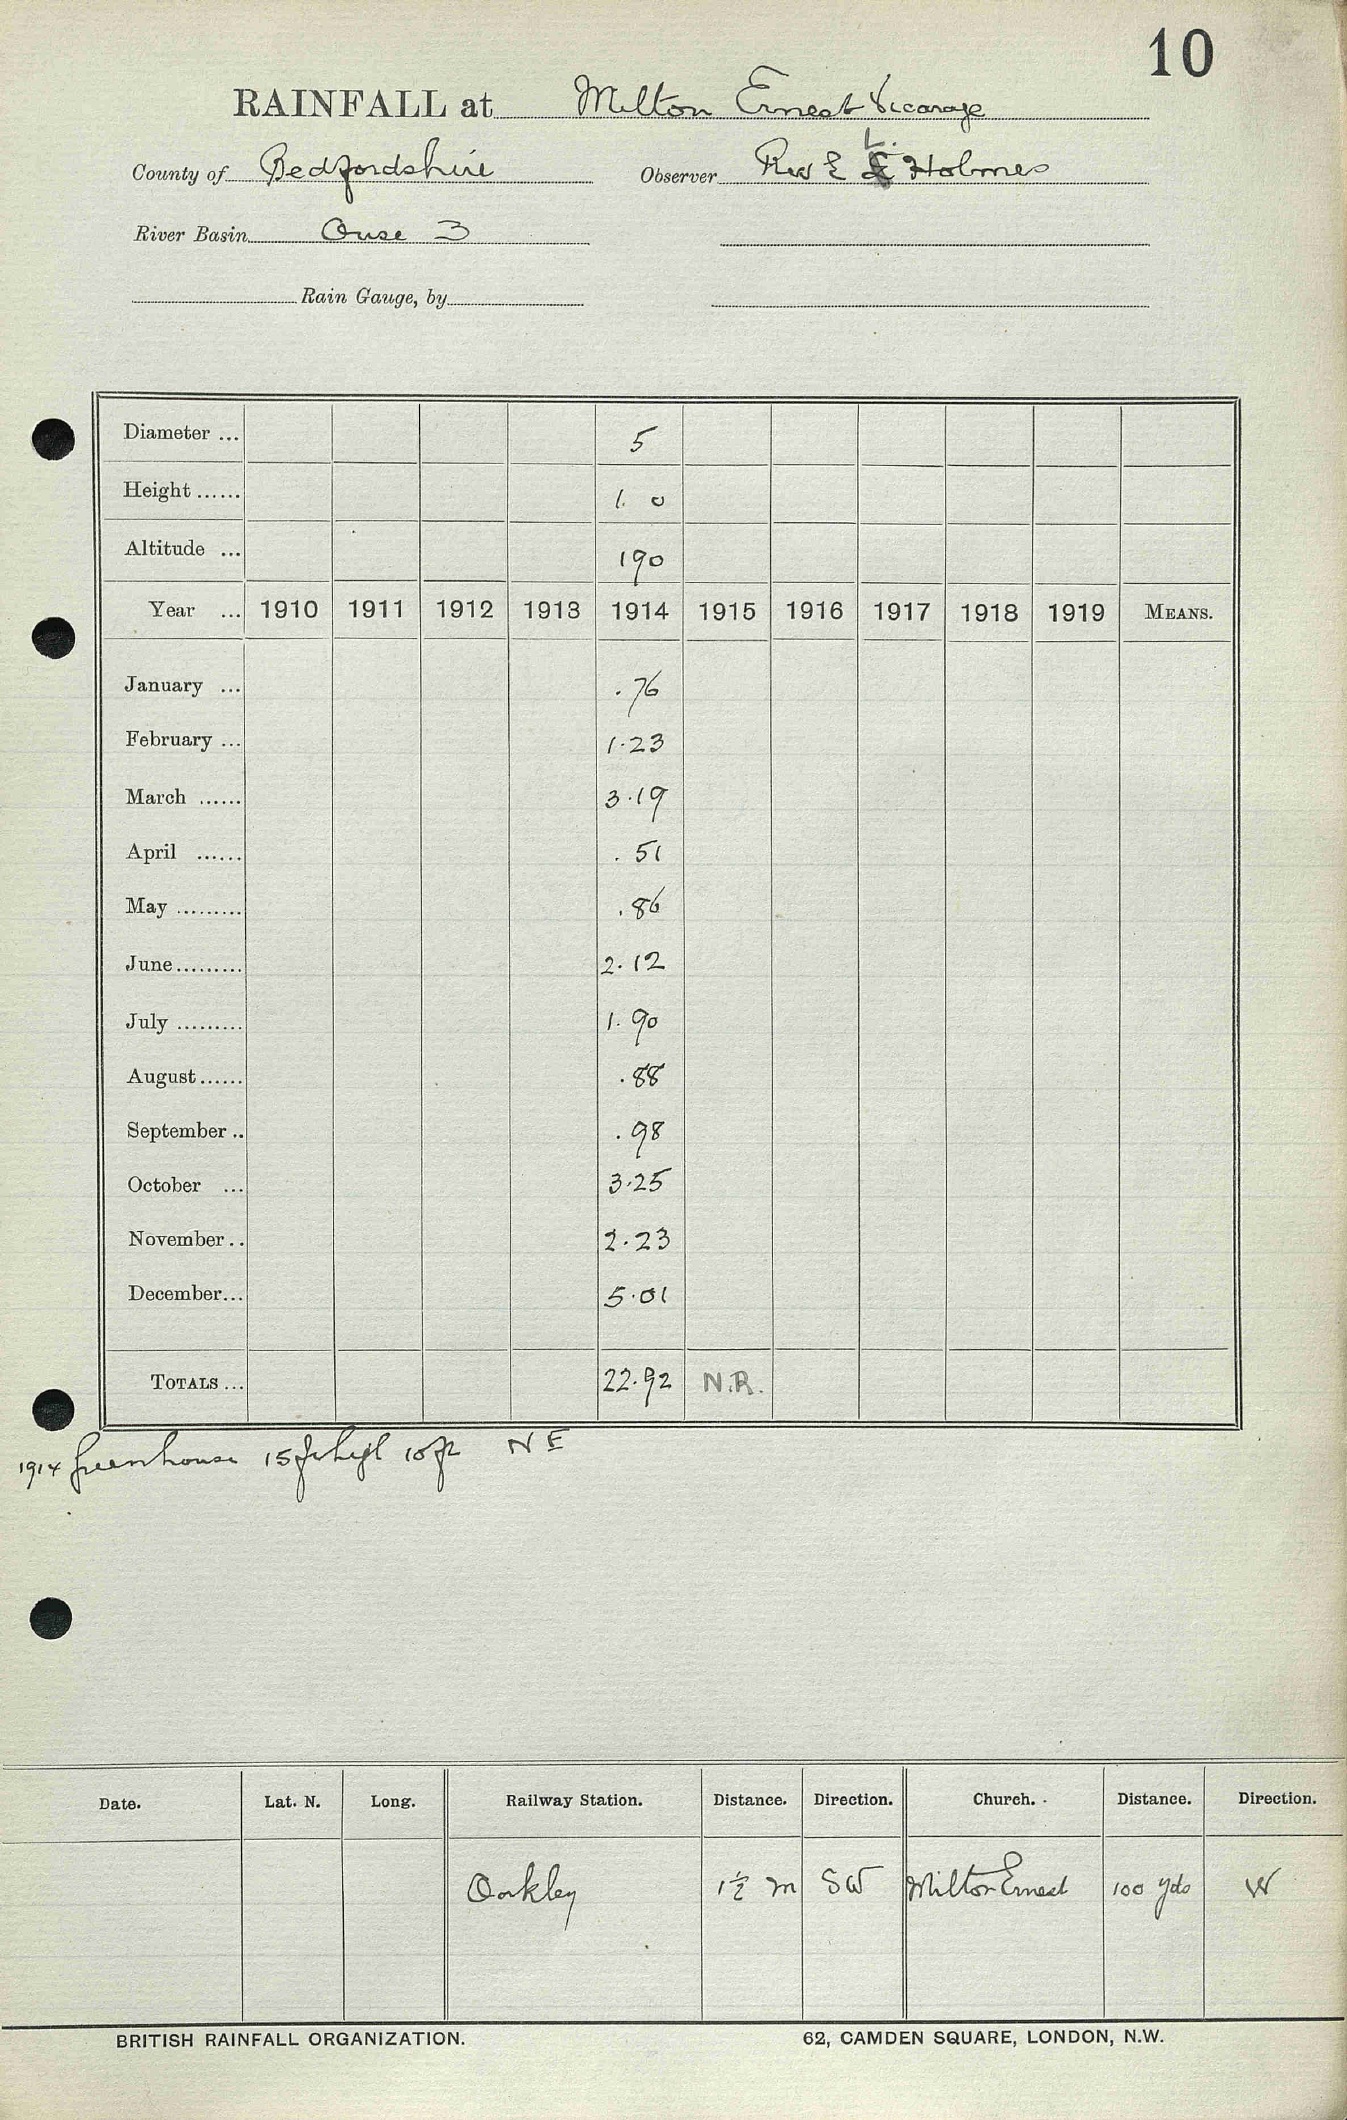 10
RAINFALL at Milton Ernest Vicarage
County of Bedfordshire Observer Rev E L. Holmes
River Basin Ouse 3
Rain Gauge, by
Diameter ... 5
Height ...... 1. 0
Altitude ... 190
Year ... 1910 1911 1912 1913 1914 1915 1916 1917 1918 1919 MEANS.
January ... .76
February ... 1.23
March ...... 3.19
April ...... .51
May ......... .86
June......... 2.12
July ......... 1.90
August...... .88
September .. .98
October ... 3.25
November .. 2.23
December... 5.01
TOTALS ... 22.92 N.R.
1914 Greenhouse 15ft high 10ft NE
Date. Lat. N. Long. Railway Station. Distance. Direction. Church. Distance. Direction.
Oakley 1½ m SW Milton Ernest 100 yds W
BRITISH RAINFALL ORGANIZATION. 62, CAMDEN SQUARE, LONDON, N.W.